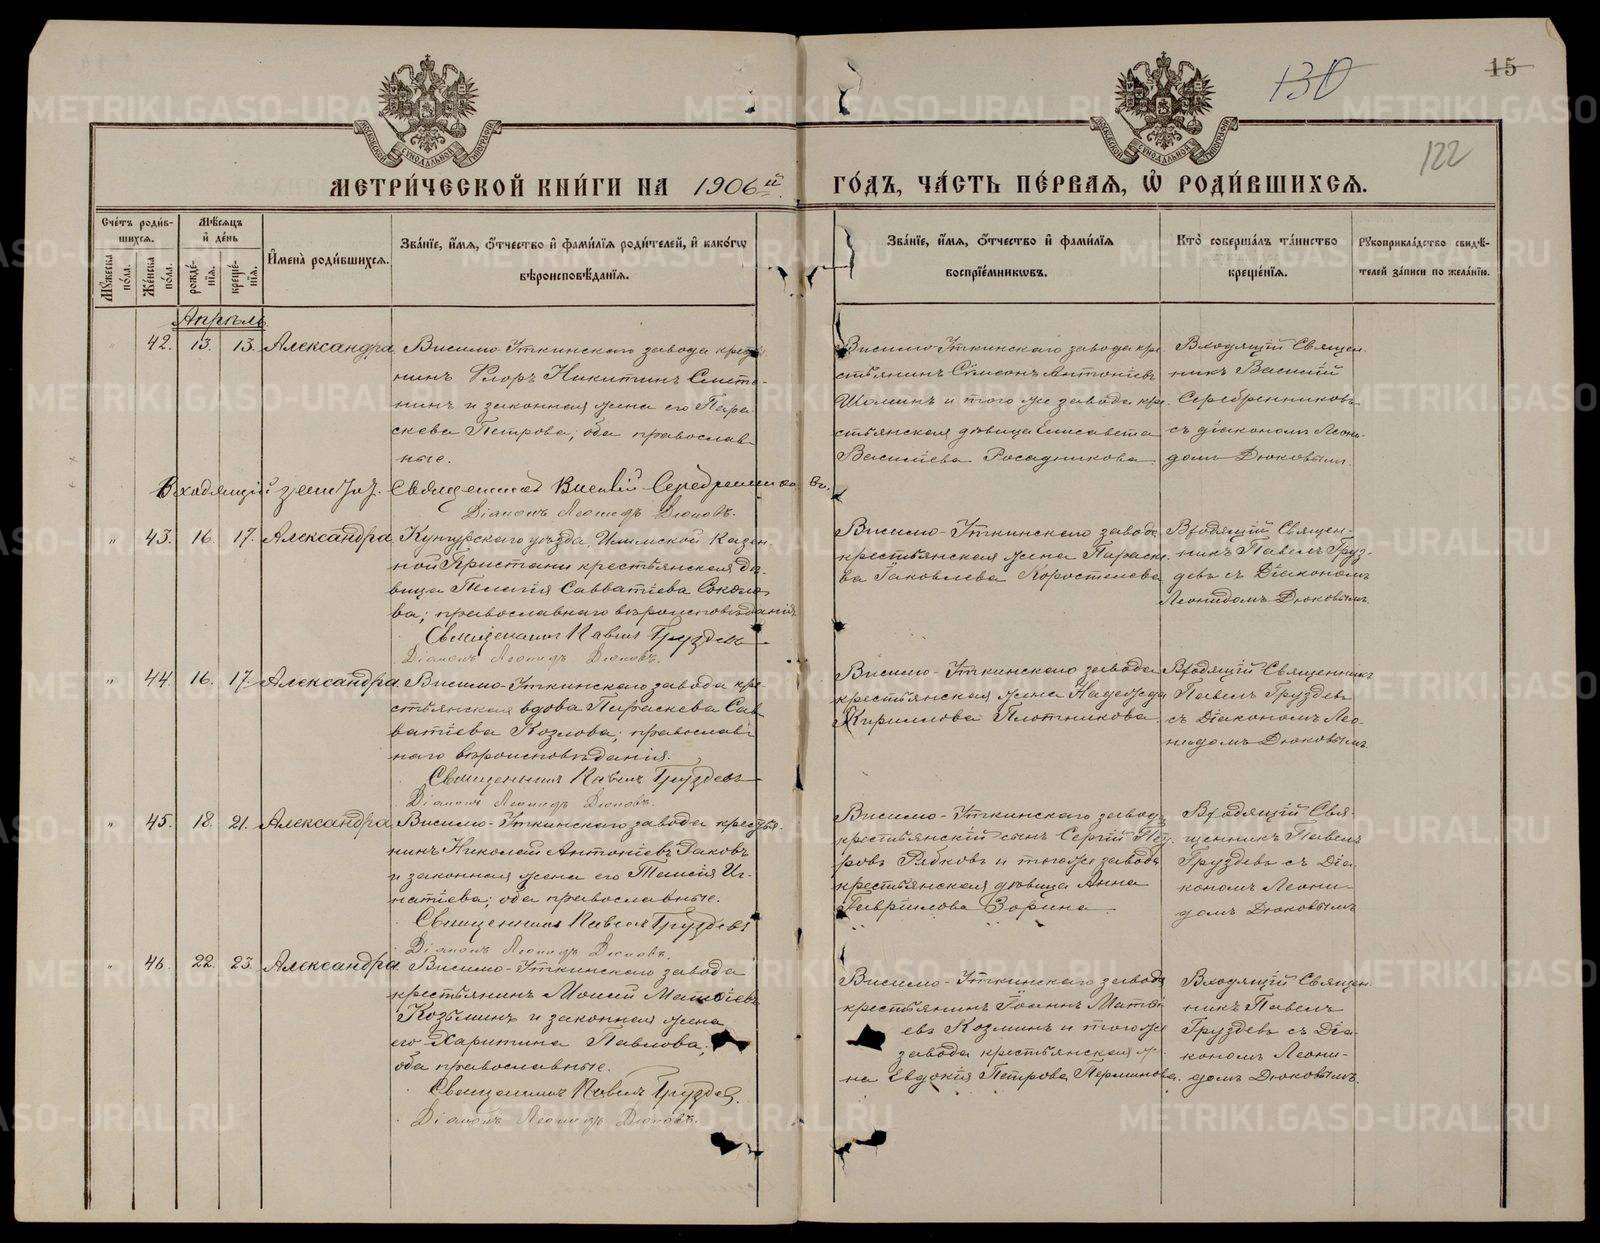 130
15
122
МЕТРИ́ЧЕСКОЙ КНИ́ГИ НА 1906й ГО́ДЪ, ЧА́СТЬ ПЕ́РВАЯ, Ѿ РОДИ́ВШИХСЯ.
Сче́тъ роди́в-
шихся.
Мѣ́сяцъ
и҆ де́нь
Мꙋ́жеска
по́ла.
Же́нска
по́ла.
рожде́-
нїя.
креще́-
нїя.
И҆мена̀ роди́вшихся.
Зва́нїе, и҆́мя, ѻ҆́тчество и҆ фами́лїя роди́телей, и҆ како́гѡ
вѣроисповѣ́данїя.
Зва́нїе, и҆́мя, ѻ҆́тчество и҆ фами́лїя
воспрїе́мникѡвъ.
Кто̀ соверша́лъ та́инство
креще́нїя.
Рꙋкоприкла́дство свидѣ́-
телей за́писи по жела́нїю.
Апрѣль
42. 13. 13. Александра
Висимо-Уткинскаго завода кресть
нинъ Флоръ Никитинъ
и законная жена его Пара-
скева Петрова; оба православ-
ные.
Висимо-Уткинскаго завода кре-
стьянинъ Симеонъ Антоніевъ
Шоминъ и того же завода кре-
стьянская дѣвица Елисавета
Василіева Росадникова.
Входящій Священ-
никъ Василій
Серебренниковъ
съ діакономъ Леони-
домъ Дюковымъ.
Входящій Священникъ Василій Серебренниковъ.
Діаконъ Леонидъ Дюковъ.
" 43. 16. 17. Александра
Кунгурскаго уѣзда, Илимской Казен-
ной Пристани крестьянская дѣ-
вица Пелагія Савватіева Соколо-
ва; православнаго вѣроисповѣданія
Священникъ Павелъ Груздевъ
Діаконъ Леонидъ Дюковъ.
Висимо-Уткинскаго завода
крестьянская жена Параске-
ва Іаковлева Коростелева
Входящій Священ-
никъ Павелъ Груз-
девъ съ Діакономъ
Леонидомъ Дюковымъ.
" 44. 16. 17. Александра
Висимо-Уткинскаго завода кре-
стьянская вдова Параскева Сав-
ватіева Козлова; православ-
наго вѣроисповѣданія.
Священникъ Павелъ Груздевъ
Діаконъ Леонидъ Дюковъ.
Висимо-Уткинскаго завода
крестьянская жена Надежда
Кириллова Плотникова.
Входящій Священникъ
Павелъ Груздевъ
съ Діакономъ Лео-
нидомъ Дюковымъ.
" 45. 18. 21. Александра
Висимо-Уткинскаго завода крестья-
нинъ Николай Антоніевъ Раковъ
и законная жена его Таисія Иг-
натіева; оба православные.
Священникъ Павелъ Груздевъ
Діаконъ Леонидъ Дюковъ.
Висимо-Уткинскаго завода
крестьянскій сынъ Сергій Пет-
ровъ Рябковъ и того же завода
крестьянская дѣвица Анна
Гавріилова Зорина.
Входящій Свя-
щенникъ Павелъ
Груздевъ съ Діа-
кономъ Леони-
домъ Дюковымъ
" 46. 22. 23. Александра
Висимо-Уткинскаго завода
крестьянинъ Моисей Матѳіевъ
Козьминъ и законная жена
его Харитина Павлова;
оба православные.
Священникъ Павелъ Груздевъ.
Діаконъ Леонидъ Дюковъ.
Висимо-Уткинскаго завода
крестьянинъ Іоаннъ Матѳі-
евъ Козминъ и того же
завода крестьянская же-
на Евдокія Петрова Перминова.
Входящій Священ-
никъ Павелъ
Груздевъ съ Діа-
кономъ Леони-
домъ Дюковымъ.
METRIKI.GASO-URAL.RU